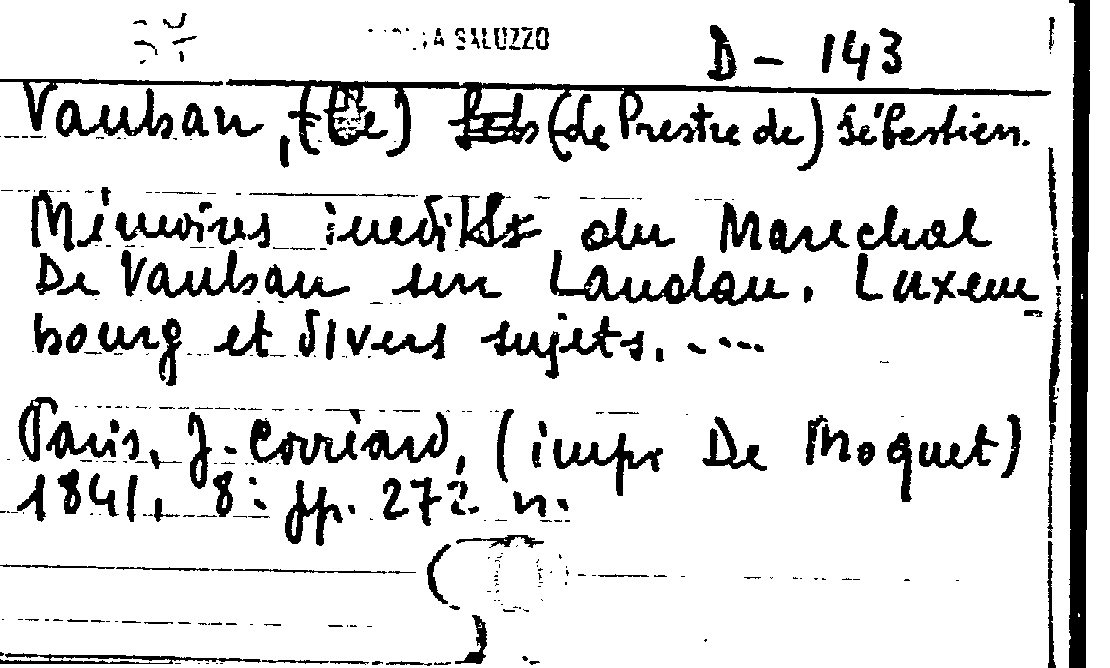 SALUZZO
D - 143
Vauban, (Le) (de Prestre de) Sébastien.
Mémoires inedits du Marechal
De Vauban sur Landau. Luxem
bourg et divers sujets. ....
Paris. J. Corréard, (impr De Moquet)
1841, 8: pp. 272 n.